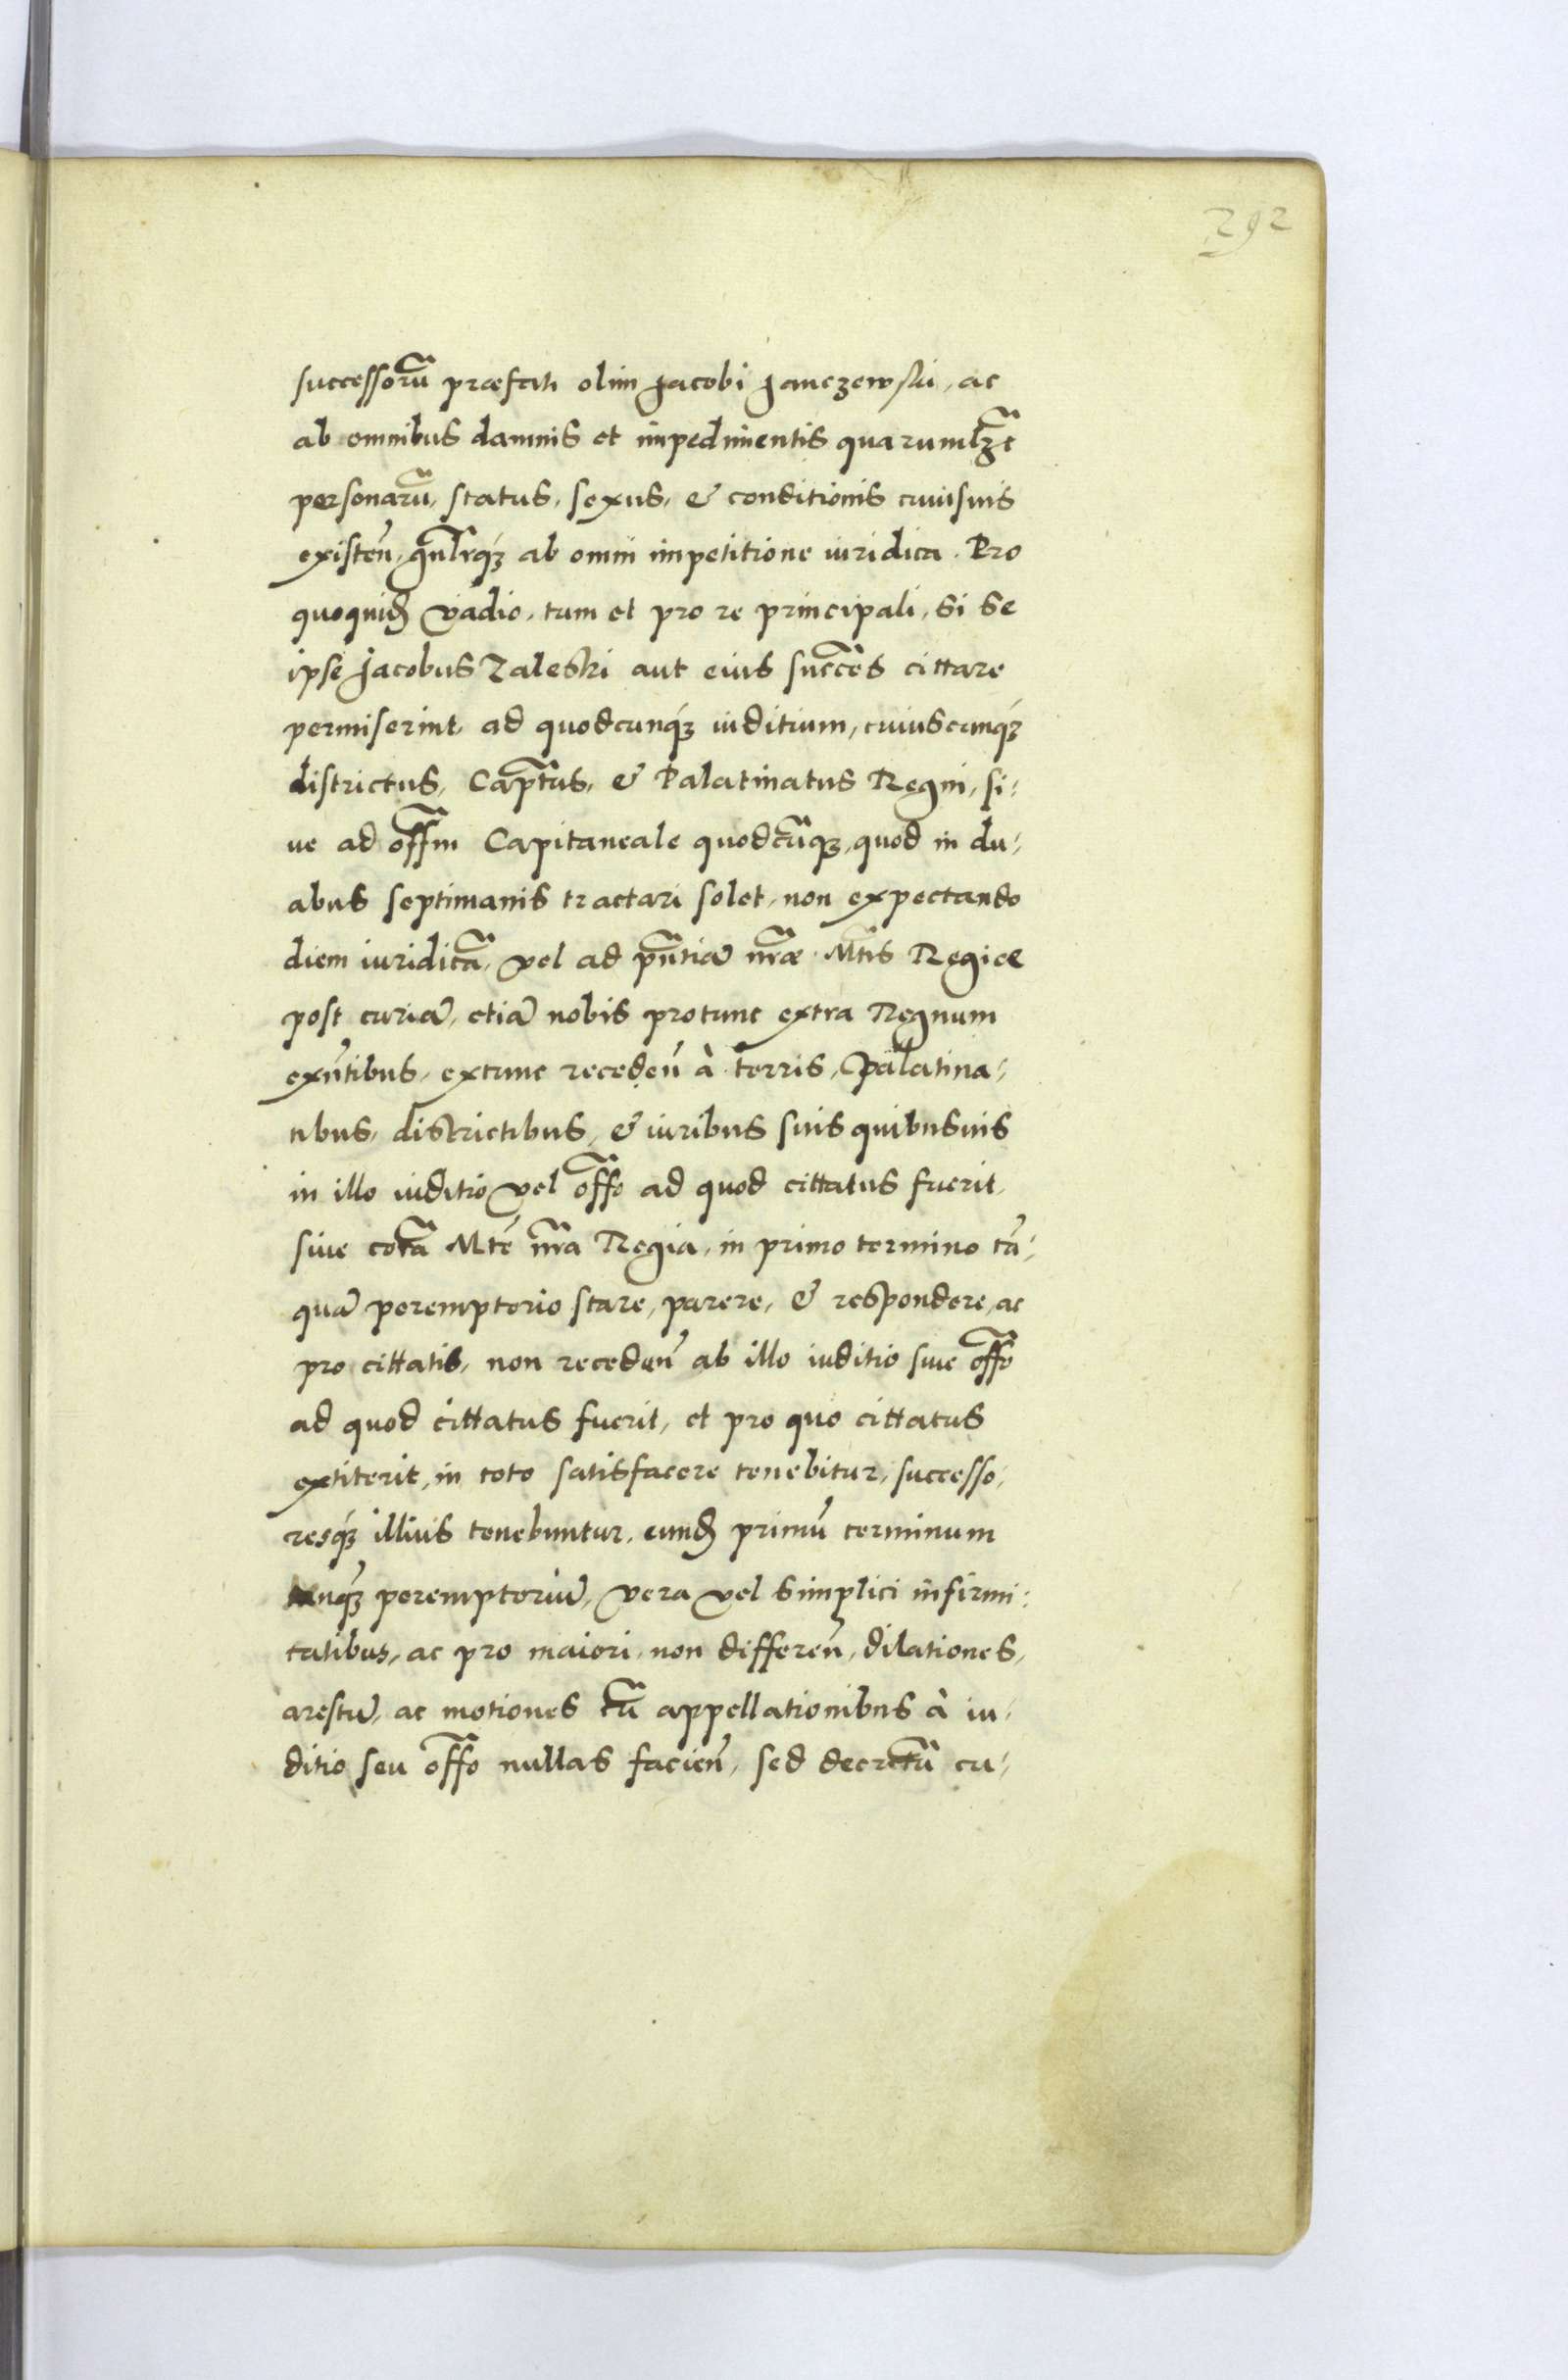 292
successorũ præfati olim Jacobi Janczewski, ac
ab omnibus damnis et impedimentis quarumlȝt
personarũ, status, sexus, & conditionis cuiusuis
existeñ, gnlrqȝ ab omni impetitione iuridica. Pro
quoquid vadio, tum et pro re principali, si se
ipse Jacobus Zaleski aut eius succēs cittare
permiserint, ad quodcunqȝ iuditium, cuiuscunqȝ
districtus, Capttus, & Palatinatus Regni, si-
ue ad offm Capitaneale quodcũqȝ, quod in du-
abus septimanis tractari solet, non expectando
diem iuridicã, vel ad pñtiã nrãe Mttis Regiæ
post curiã, etiã nobis protunc extra Regnum
exñtibus, extunc recedeñ à terris, Palatina-
tibus, districtibus, & iuribus suis quibusuis
in illo iuditio vel offo ad quod cittatus fuerit,
siue corã Mtē nrã Regia, in primo termino tã-
quã peremptorio stare, parere, & respondere, ac
pro cittatis, non recedeñ ab illo iuditio siue offo
ad quod cittatus fuerit, et pro quo cittatus
extiterit, in toto satisfacere tenebitur, successo-
resqȝ illius tenebuntur. eund primũ terminum
peremptoriũ, vera vel simplici infirmi-
tatibus, ac pro maiori, non differeñ, dilationes,
arestũ, ac motiones cũ appellationibus à iu-
ditio seu offo nullas facieñ, sed decretũ cu-